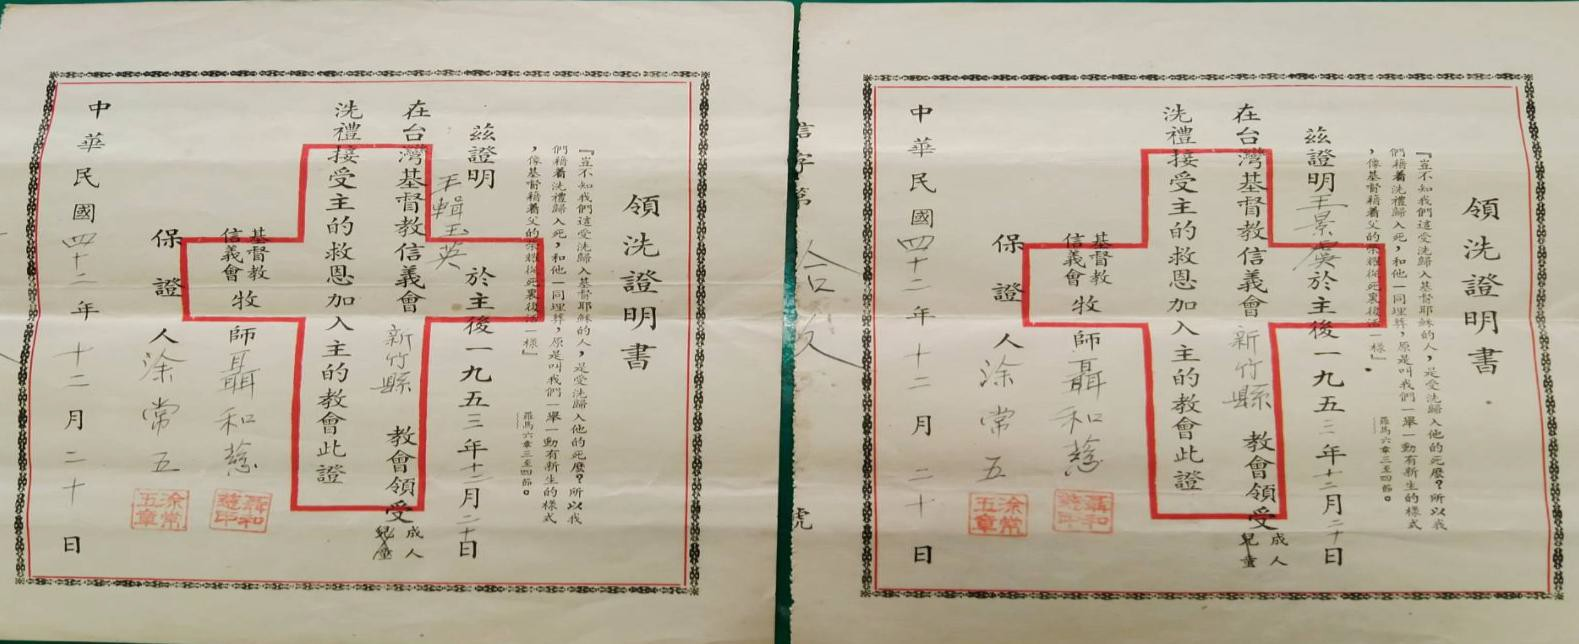 領洗證明書
『豈不知我們這受洗歸入基督耶穌的人，是受洗歸入他的死麼？所以我
們藉着洗禮歸入死，和他一同埋葬，原是叫我們一舉一動有新生的樣式
，像基督藉着父的榮耀從死裏復活一樣』
羅馬六章三至四節。
茲證明王景虞於主後一九五三年十二月二十日
在台灣基督教信義會新竹縣教會領受成人
兒童
洗禮接受主的救恩加入主的教會此證
基督教
信義會
牧師聶和慈
聶和慈印
保證人涂常五
涂常五章
中華民國四十二年十二月二十日
信字第
號
領洗證明書
『豈不知我們這受洗歸入基督耶穌的人，是受洗歸入他的死麼？所以我
們藉着洗禮歸入死，和他一同埋葬，原是叫我們一舉一動有新生的樣式
，像基督藉着父的榮耀從死裏復活一樣』
羅馬六章三至四節。
茲證明王輯玉英於主後一九五三年十二月二十日
在台灣基督教信義會新竹縣教會領受成人
兒童
洗禮接受主的救恩加入主的教會此證
基督教
信義會
牧師聶和慈
聶和慈印
保證人涂常五
涂常五章
中華民國四十二年十二月二十日